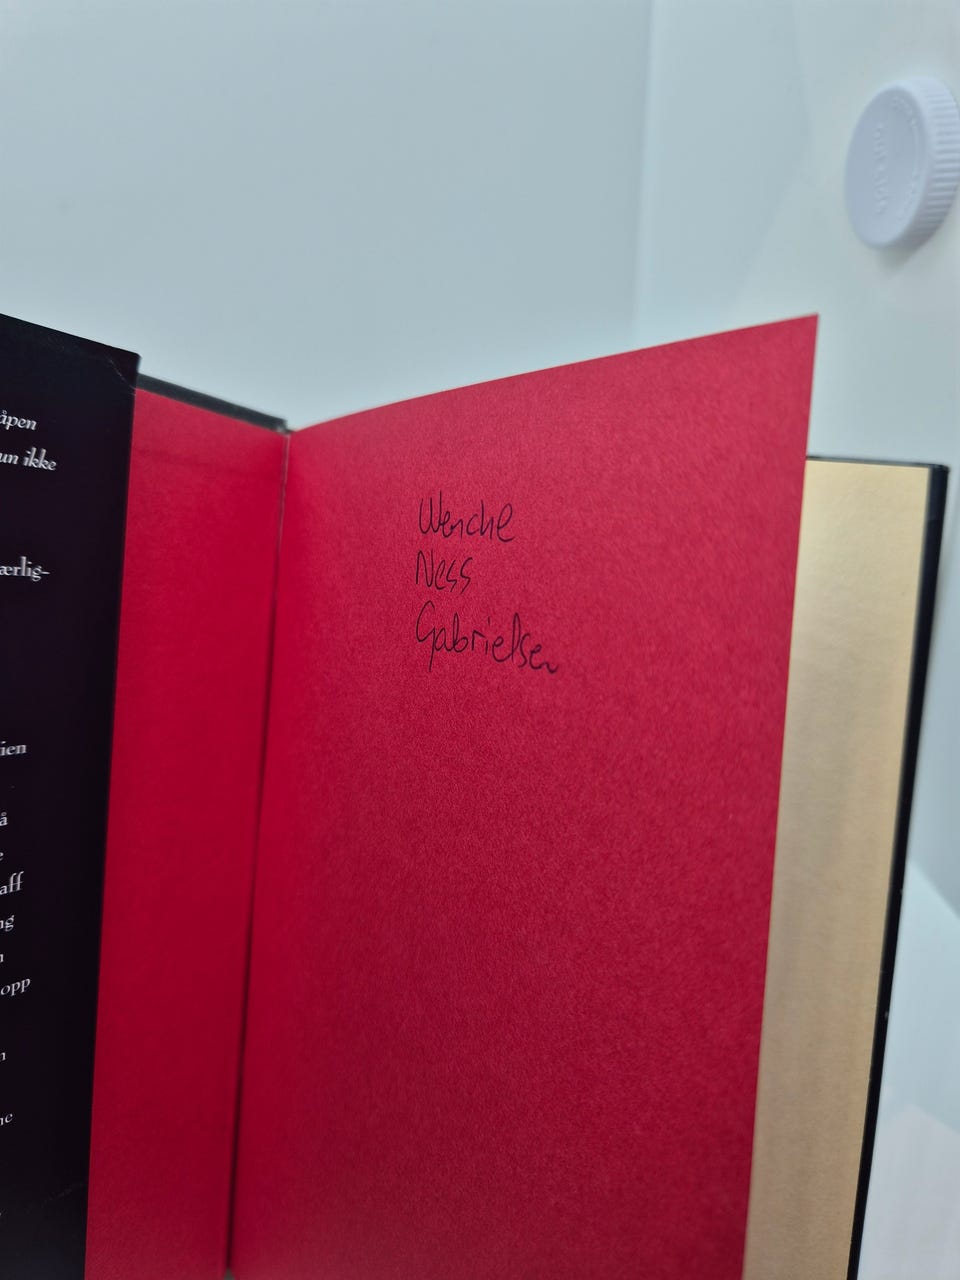 åpen
un ikke
ærlig-
ien
å
e
aff
ng
opp
Wenche
Ness
Gabrielsen